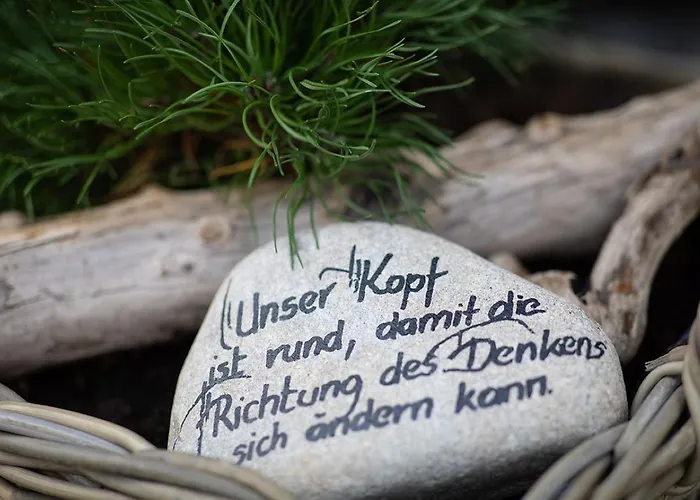 Unser Kopf
ist rund, damit die
Richtung des Denkens
sich ändern kann.